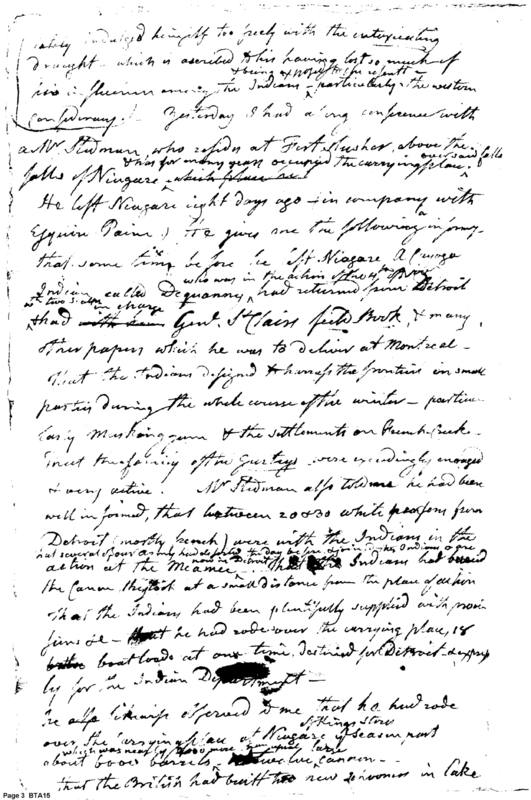 lately indulged himself too freely with the intoxicating
draught – which is ascribed to his having lost so much of
& being exposed to the resentt
his influence among the Indians – particularly the western
confederacy. – Yesterday I had a long conference with
a Mr Stedman, who resides at Fort Slusher, above the
& has for many years occupied the carrying place over said falls
falls of Niagara, which place
He left Niagara eight days ago – in company with
Esquire Paine) He gives me the following inform-
that some time before he left Niagara A Cayuga
who was in the action of the 4th Novr
Indian called Dequanory had returned from Detroit
with two
in charge
& had with Genl. St Clairs field Book, & many
other papers which he was to deliver at Montreal –
That the Indians designed to harrass the frontiers in small
parties during the whole course of the winter – particu-
larly Muskinggum & the settlements on French Creek –
that the family of the Gurtys were exceedingly enraged
& very active. Mr Stedman also told me he had been
well informed, that between 20 & 30 white persons from
Detroit (mostly french) were with the Indians in the
that several of our army had deserted the day before & joined the Indians & are
now in Detroit
action at the Meamee – That the Indians had
the Canon at a small distance from the place of action
That the Indians had been plentifully supplied with provi
sions &c – that he had rode over the carrying place, 18
boat loads at one time, destined for Detroit – express
ly for the Indian Department –
He also likewise observed to me that he had rode
Kings stores
over the carrying place at Niagara season past
which was nearly more than
about 6000 barrels – twelve cannon –
that the British had built two new in Lake
Page 3 BTA15